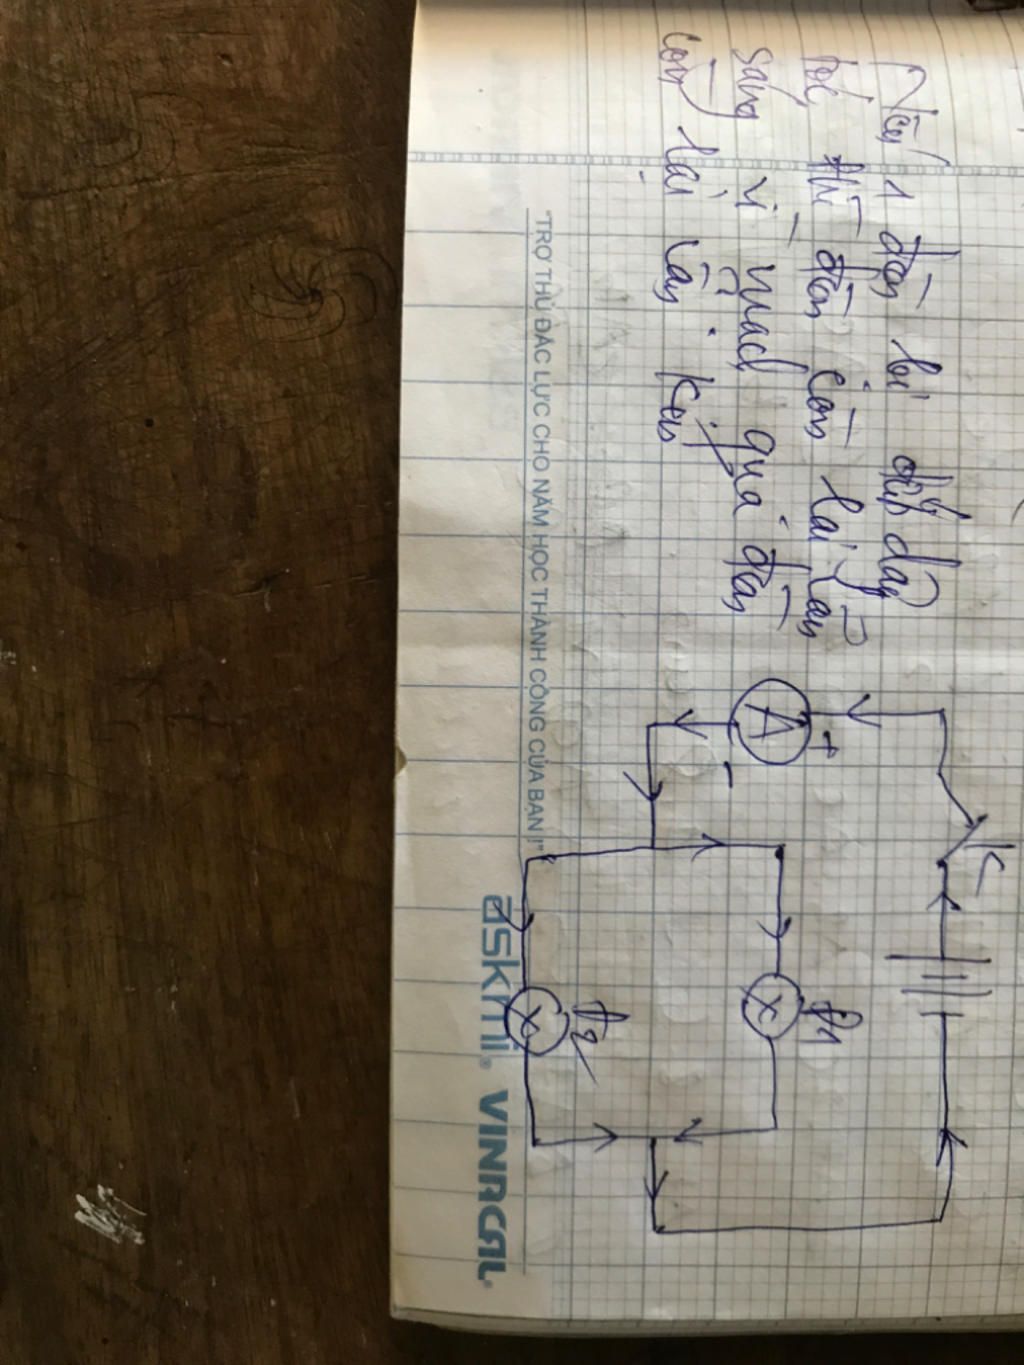 Nếu 1 đèn bị đứt dây
tóc thì đèn còn lại vẫn
sáng vì mạch qua đèn
còn lại vẫn kín
"TRỢ THỦ ĐẮC LỰC CHO NĂM HỌC THÀNH CÔNG CỦA BẠN !"
askmi. VINACAL
K
A
+
-
Đ1
Đ2